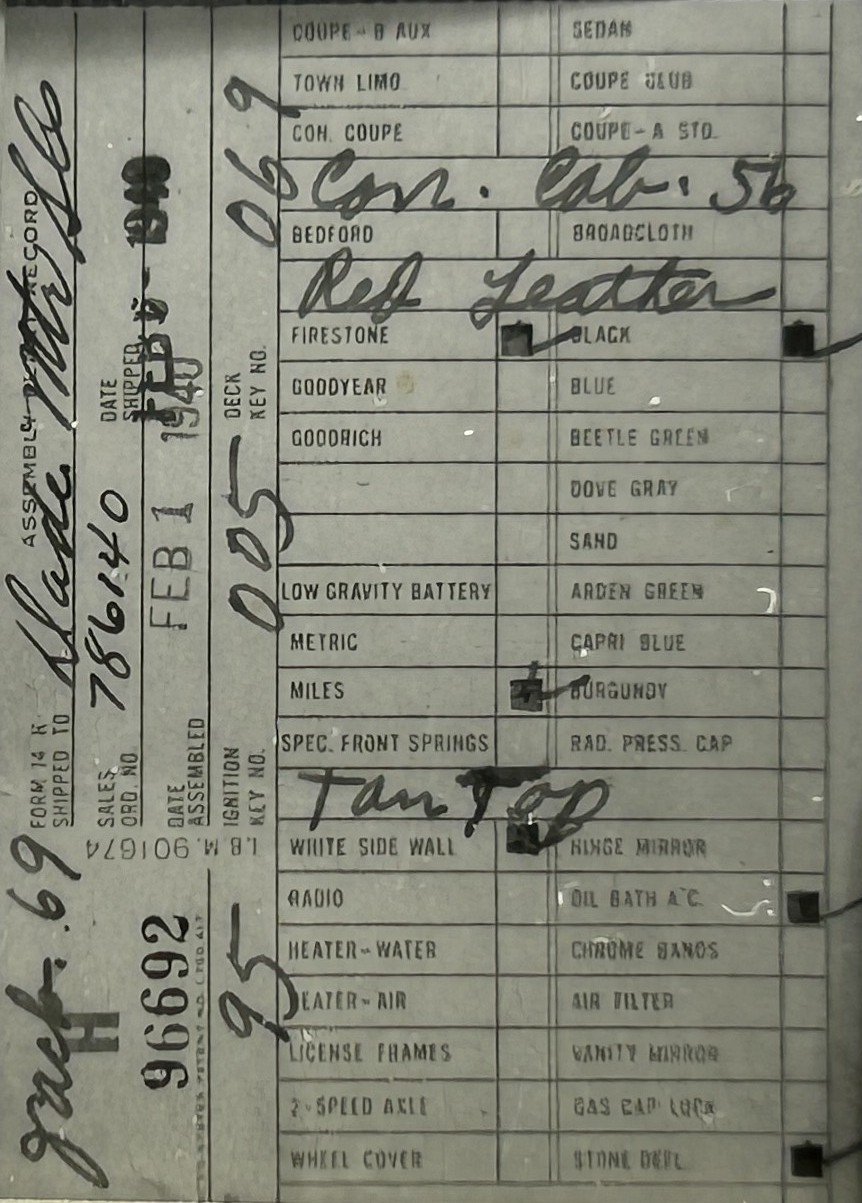 FORM 14 R
ASSEMBLY RECORD
SHIPPED TO
SALES ORD. NO. 786140
DATE SHIPPED FEB 1940
DATE ASSEMBLED FEB 1 1940
IGNITION KEY NO. 005
DECK KEY NO. 069
I.B.M. 901674
69
H
96692
95
COUPE-B AUX SEDAN
TOWN LIMO COUPE CLUB
CON. COUPE COUPE-A STD.
Con. Cab. 56
BEDFORD BROADCLOTH
Red Leather
FIRESTONE BLACK
GOODYEAR BLUE
GOODRICH BEETLE GREEN
DOVE GRAY
SAND
LOW GRAVITY BATTERY ARDEN GREEN
METRIC CAPRI BLUE
MILES BURGUNDY
SPEC. FRONT SPRINGS RAD. PRESS. CAP
Tan Top
WHITE SIDE WALL HINGE MIRROR
RADIO OIL BATH A.C.
HEATER-WATER CHROME BANDS
HEATER-AIR AIR FILTER
LICENSE FRAMES VANITY MIRROR
2-SPEED AXLE GAS CAP LOCK
WHEEL COVER STONE DEFL.